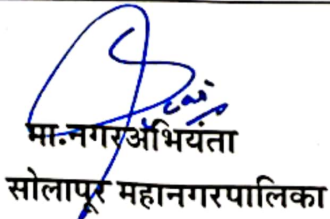 मा.नगरअभियंता
सोलापूर महानगरपालिका